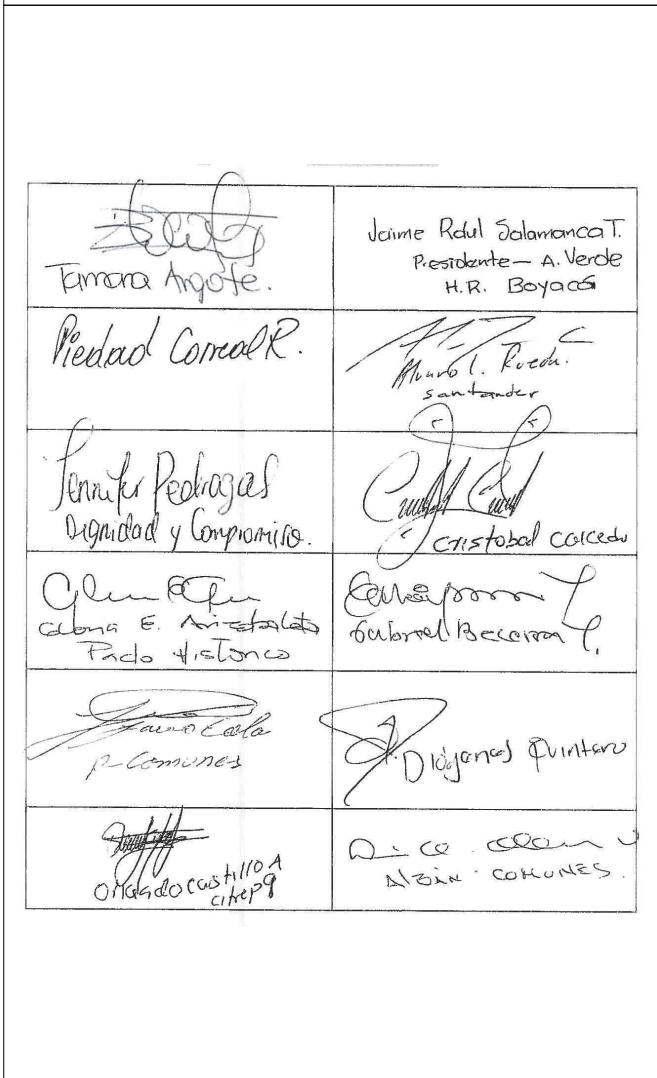 Tamara Argote.
Jaime Raul Salamanca T.
Presidente - A. Verde
H.R. Boyacá
Piedad Correal R.
Alvaro L. Rueda.
Santander
Jennifer Pedraza S
Dignidad y Compromiso.
Cristobal Caicedo
Gloria E. Arizabaleta
Pacto Historico
Gabriel Becerra Y.
P-Comunes
Diógenes Quintero
Orlando Castillo A
citrep 9
Albán · COMUNES.